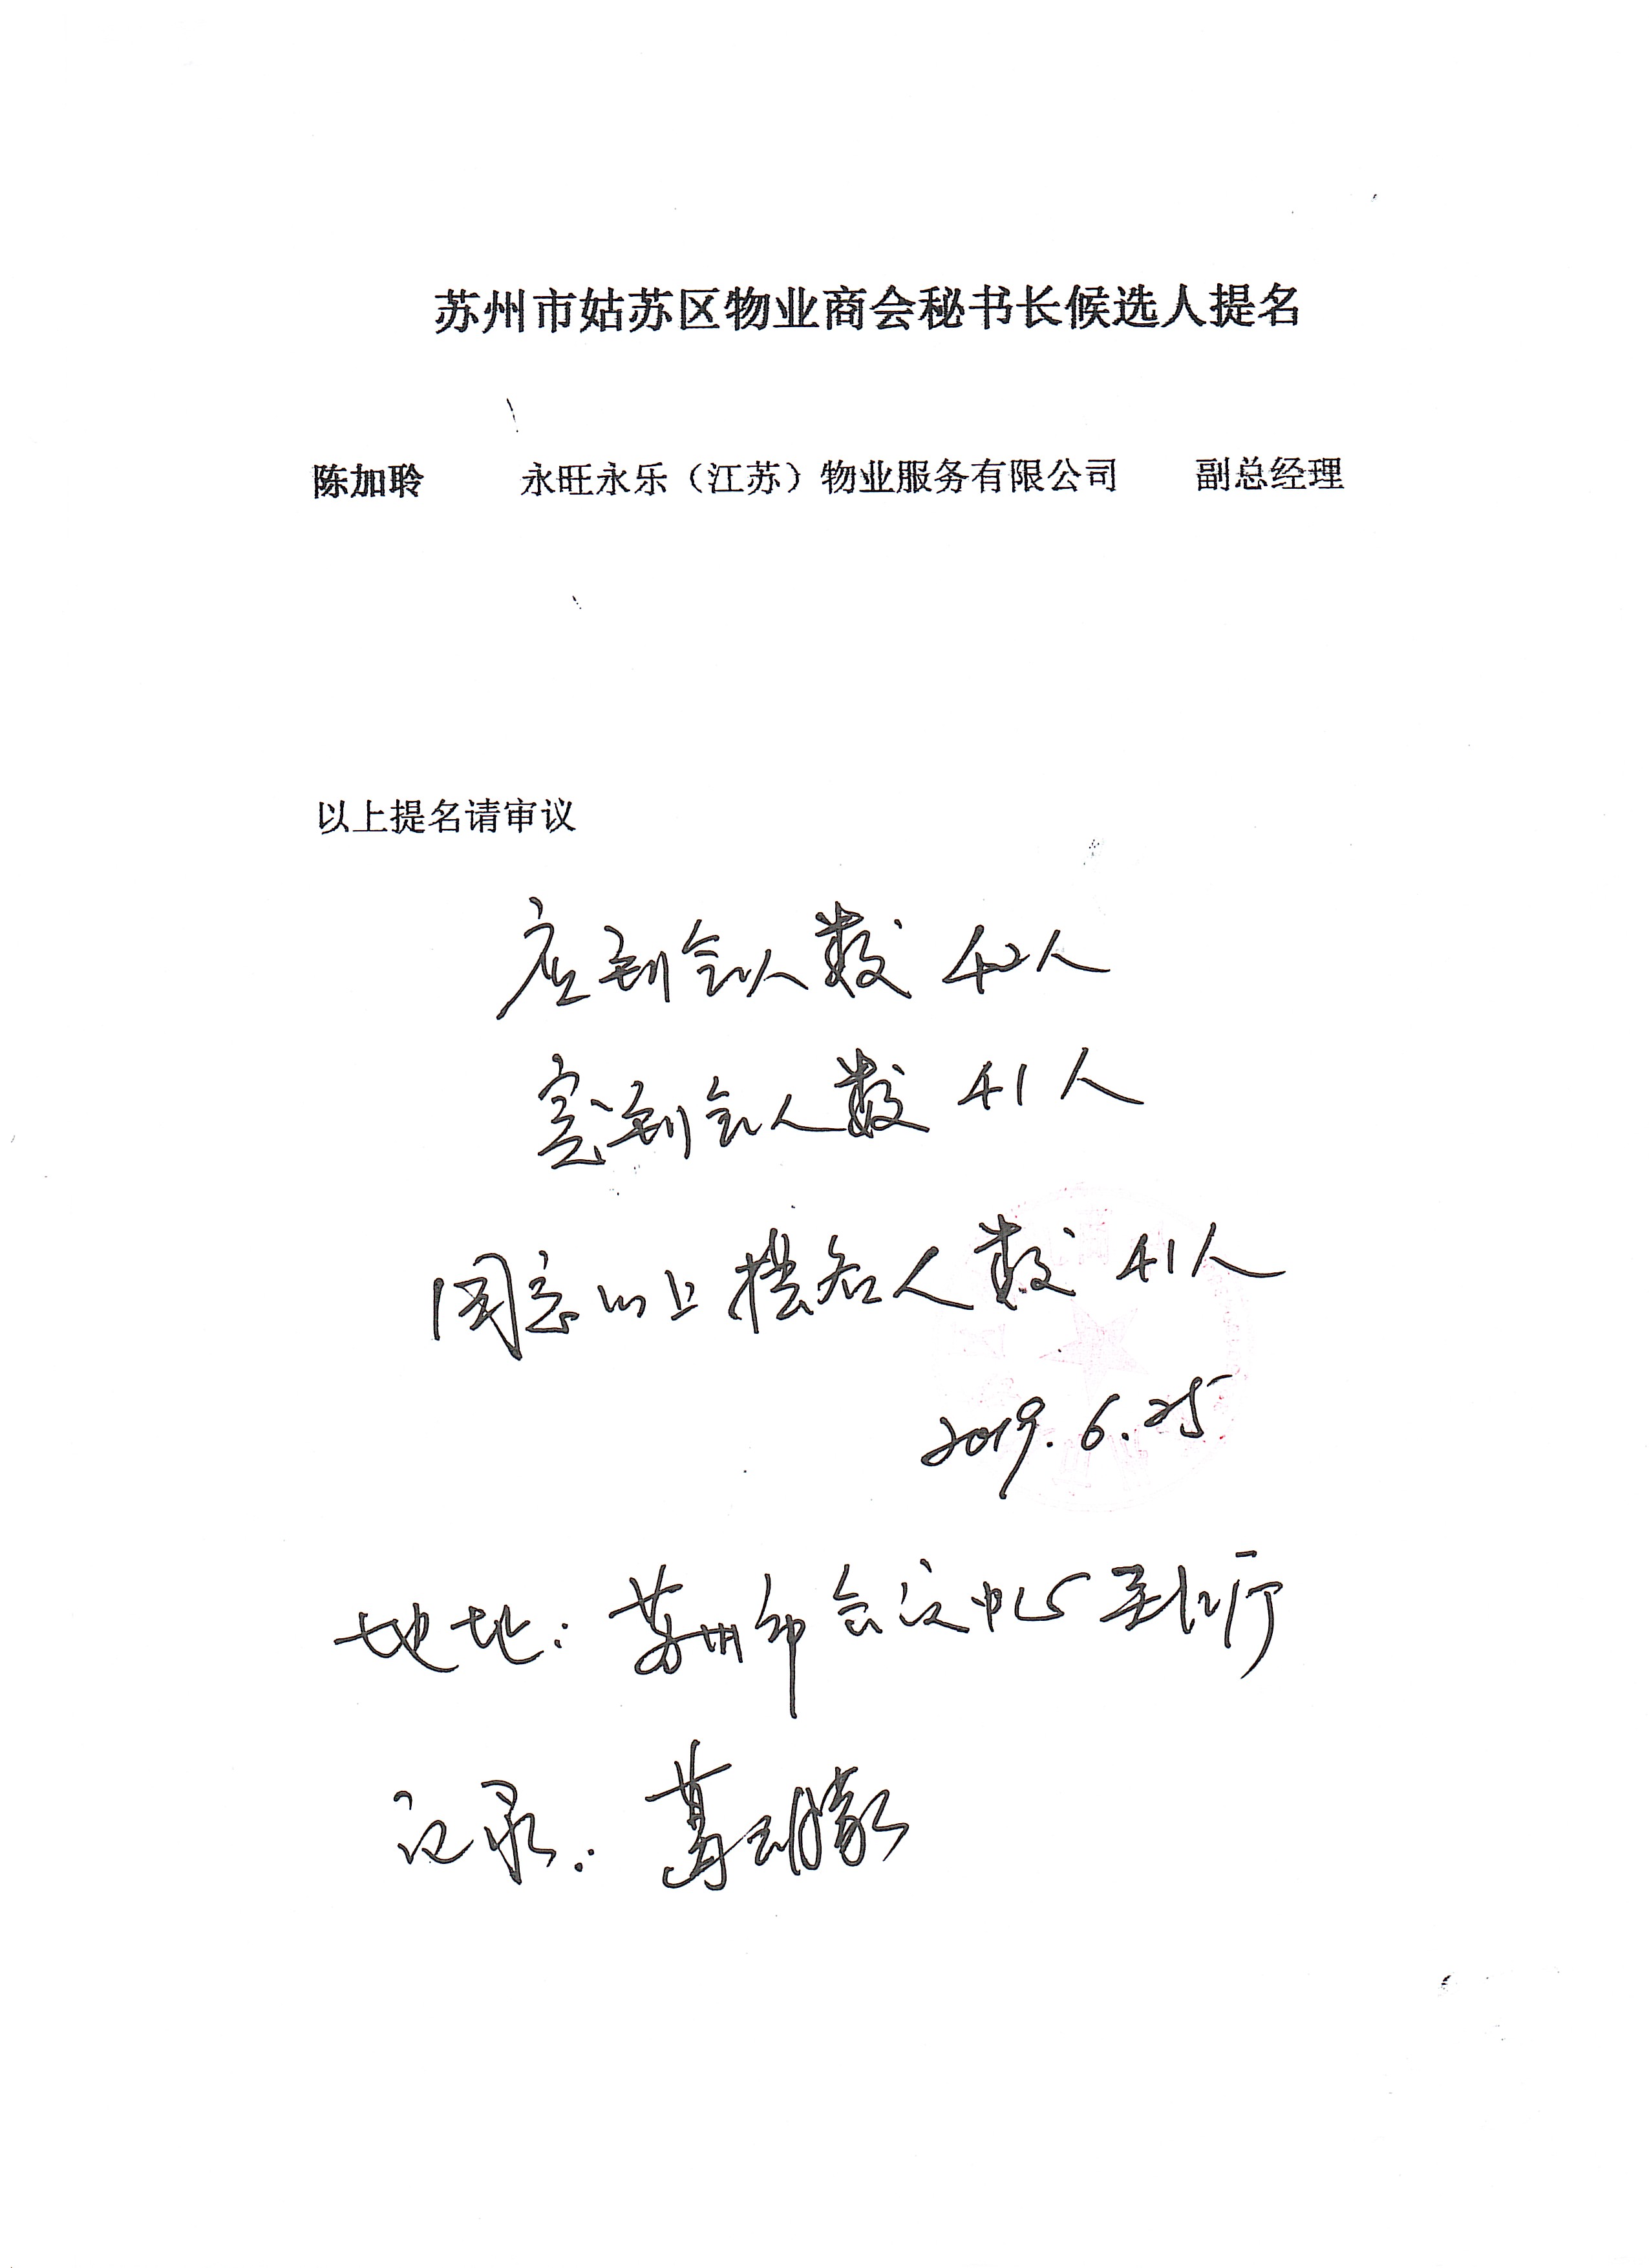 苏州市姑苏区物业商会秘书长候选人提名
陈加聆 永旺永乐（江苏）物业服务有限公司 副总经理
以上提名请审议
应到会人数 42人
实到会人数 41人
同意以上提名人数 41人
2019.6.25
地址：苏州市会议中心 厅
记录：葛